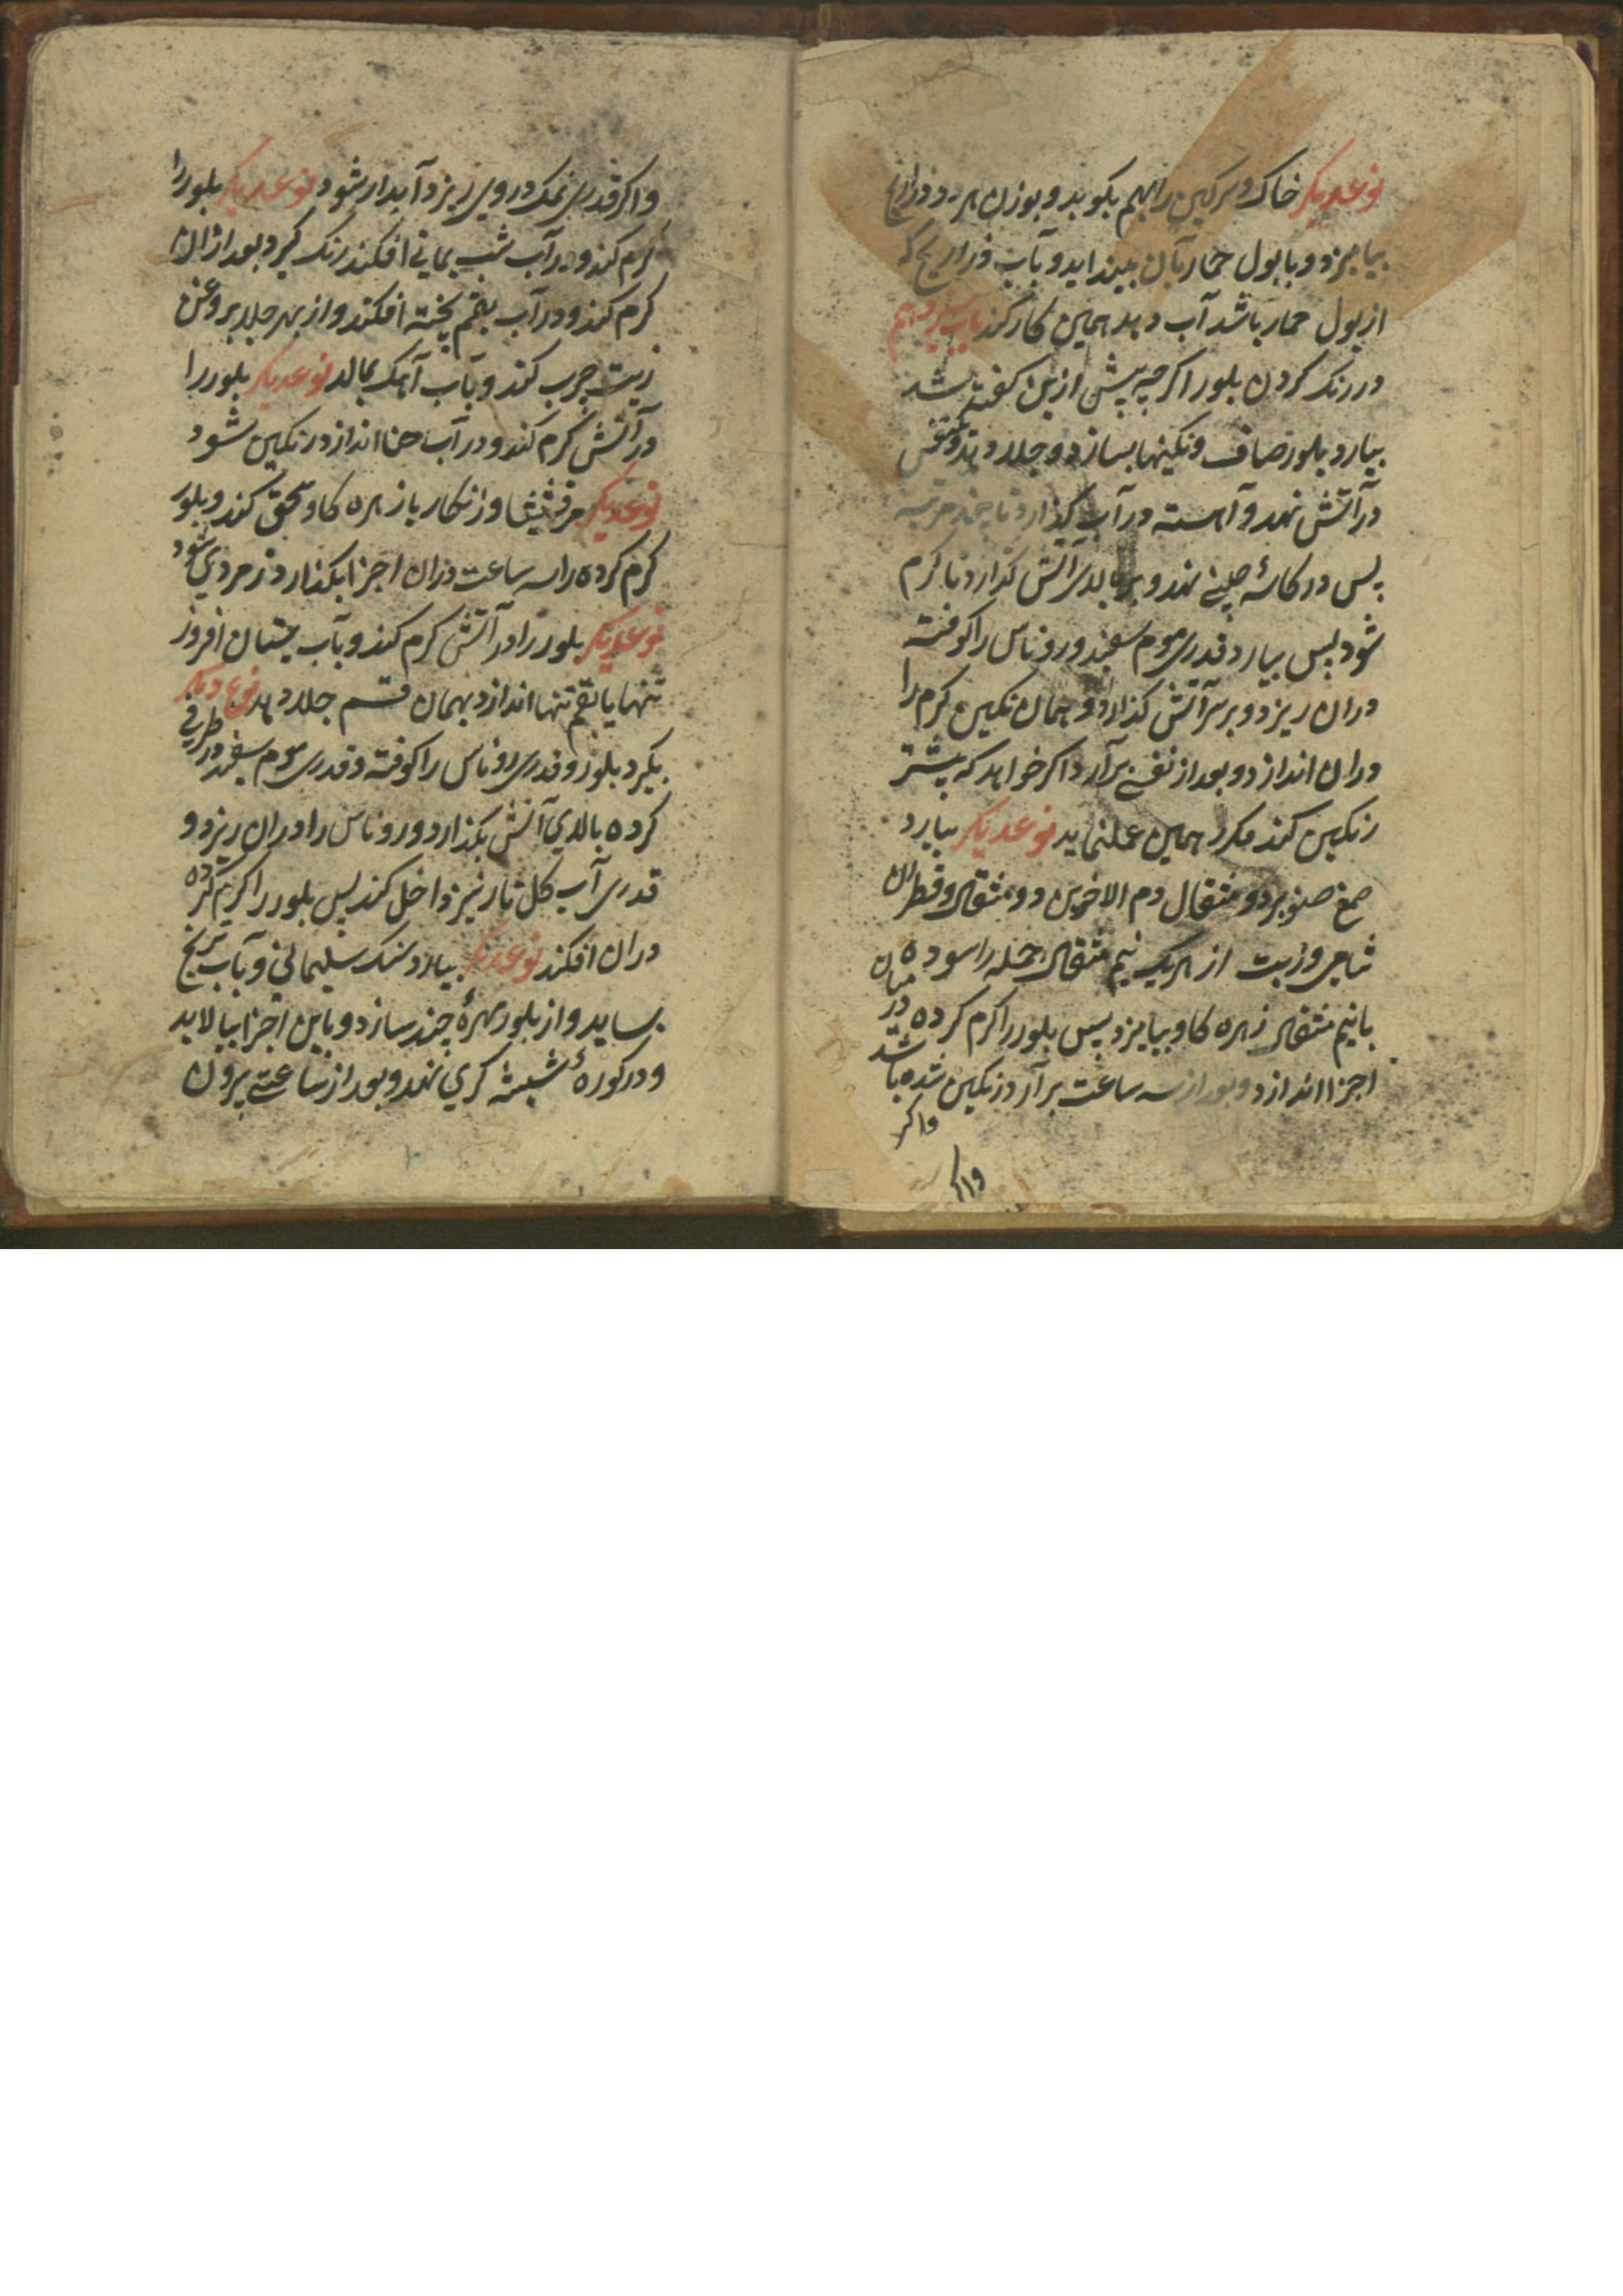 نوعدیکر خاک و سرکین را بهم بکوبد و بوزن هر دو ذراریح
بیامیزد و با بول حمار بآن بینداید و بآب ذراریح که
از بول حمار باشد آب دهد همین کار کند باب سیزدهم
در رنک کردن بلور اکرچه پیشی ازین کفته شد
بیارد بلور صاف و نکینها بسازد و جلا دهد و
در آتش نهد و آهسته در آب کذارد تا چند مرتبه
پس در کاسۀ چینی نهد و بر بالای آتش کذارد تا کرم
شود پس بیارد قدری موم سفید و روناس را کوفته
دران ریزد و بر سر آتش کذارد و همان نکین کرم را
دران اندازد و بعد از نفسی برآرد اکر خواهد که بیشتر
رنکین کند مکرر همین عمل نماید نوعدیکر بیارد
صمغ صنوبر دو مثقال دم الاخوین دو مثقال و قطران
شامی و زیت از هر یک نیم مثقال جمله را سوده
با نیم مثقال زهره کاو بیامیزد پس بلور را کرم کرده در میان
اجزا اندازد و بعد از سه ساعت برآرد رنکین شده باشد
واکر
واکر
واکر قدری نمک در وی ریزد آبدار شود نوعدیکر بلور را
کرم کند و در آب شب یمانی افکند رنک کیرد بعد ازان
کرم کند و در آب بقم پخته افکند و از بهر جلا بروغن
زیت چرب کند و بآب آهک بمالد نوعدیکر بلور را
در آتش کرم کند و در آب حنا اندازد رنکین شود
نوعدیکر مرقشیشا و زنکار با زهره کاو سحق کند و بلور
کرم کرده را سه ساعت دران اجزا بکذارد زمردی شود
نوعدیکر بلور را در آتش کرم کند و بآب بستان افروز
تنها یا بقم تنها اندازد بهمان قسم جلا دهد نوع دیکر
بکیرد بلور و قدری روناس را کوفته و قدری موم سفید در ظرفی
کرده بالای آتش بکذارد و روناس را دران ریزد و
قدری آب کل نار نیز داخل کند پس بلور را کرم کرده
دران افکند نوعدیکر بیارد سنک سلیمانی و بآب ترنج
بساید و از بلور مهرۀ چند سازد و باین اجزا بیالاید
و در کورهٔ شیشه کری نهد و بعد از ساعتی بیرون